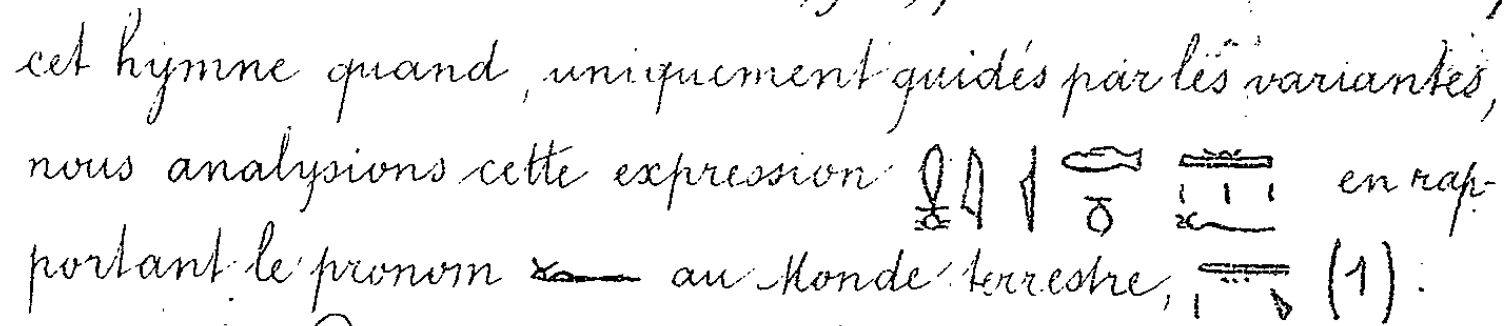 cet hymne quand, uniquement guidés par les variantes,
nous analysions cette expression en rap-
portant le pronom 𓆑 au Monde terrestre, (1).